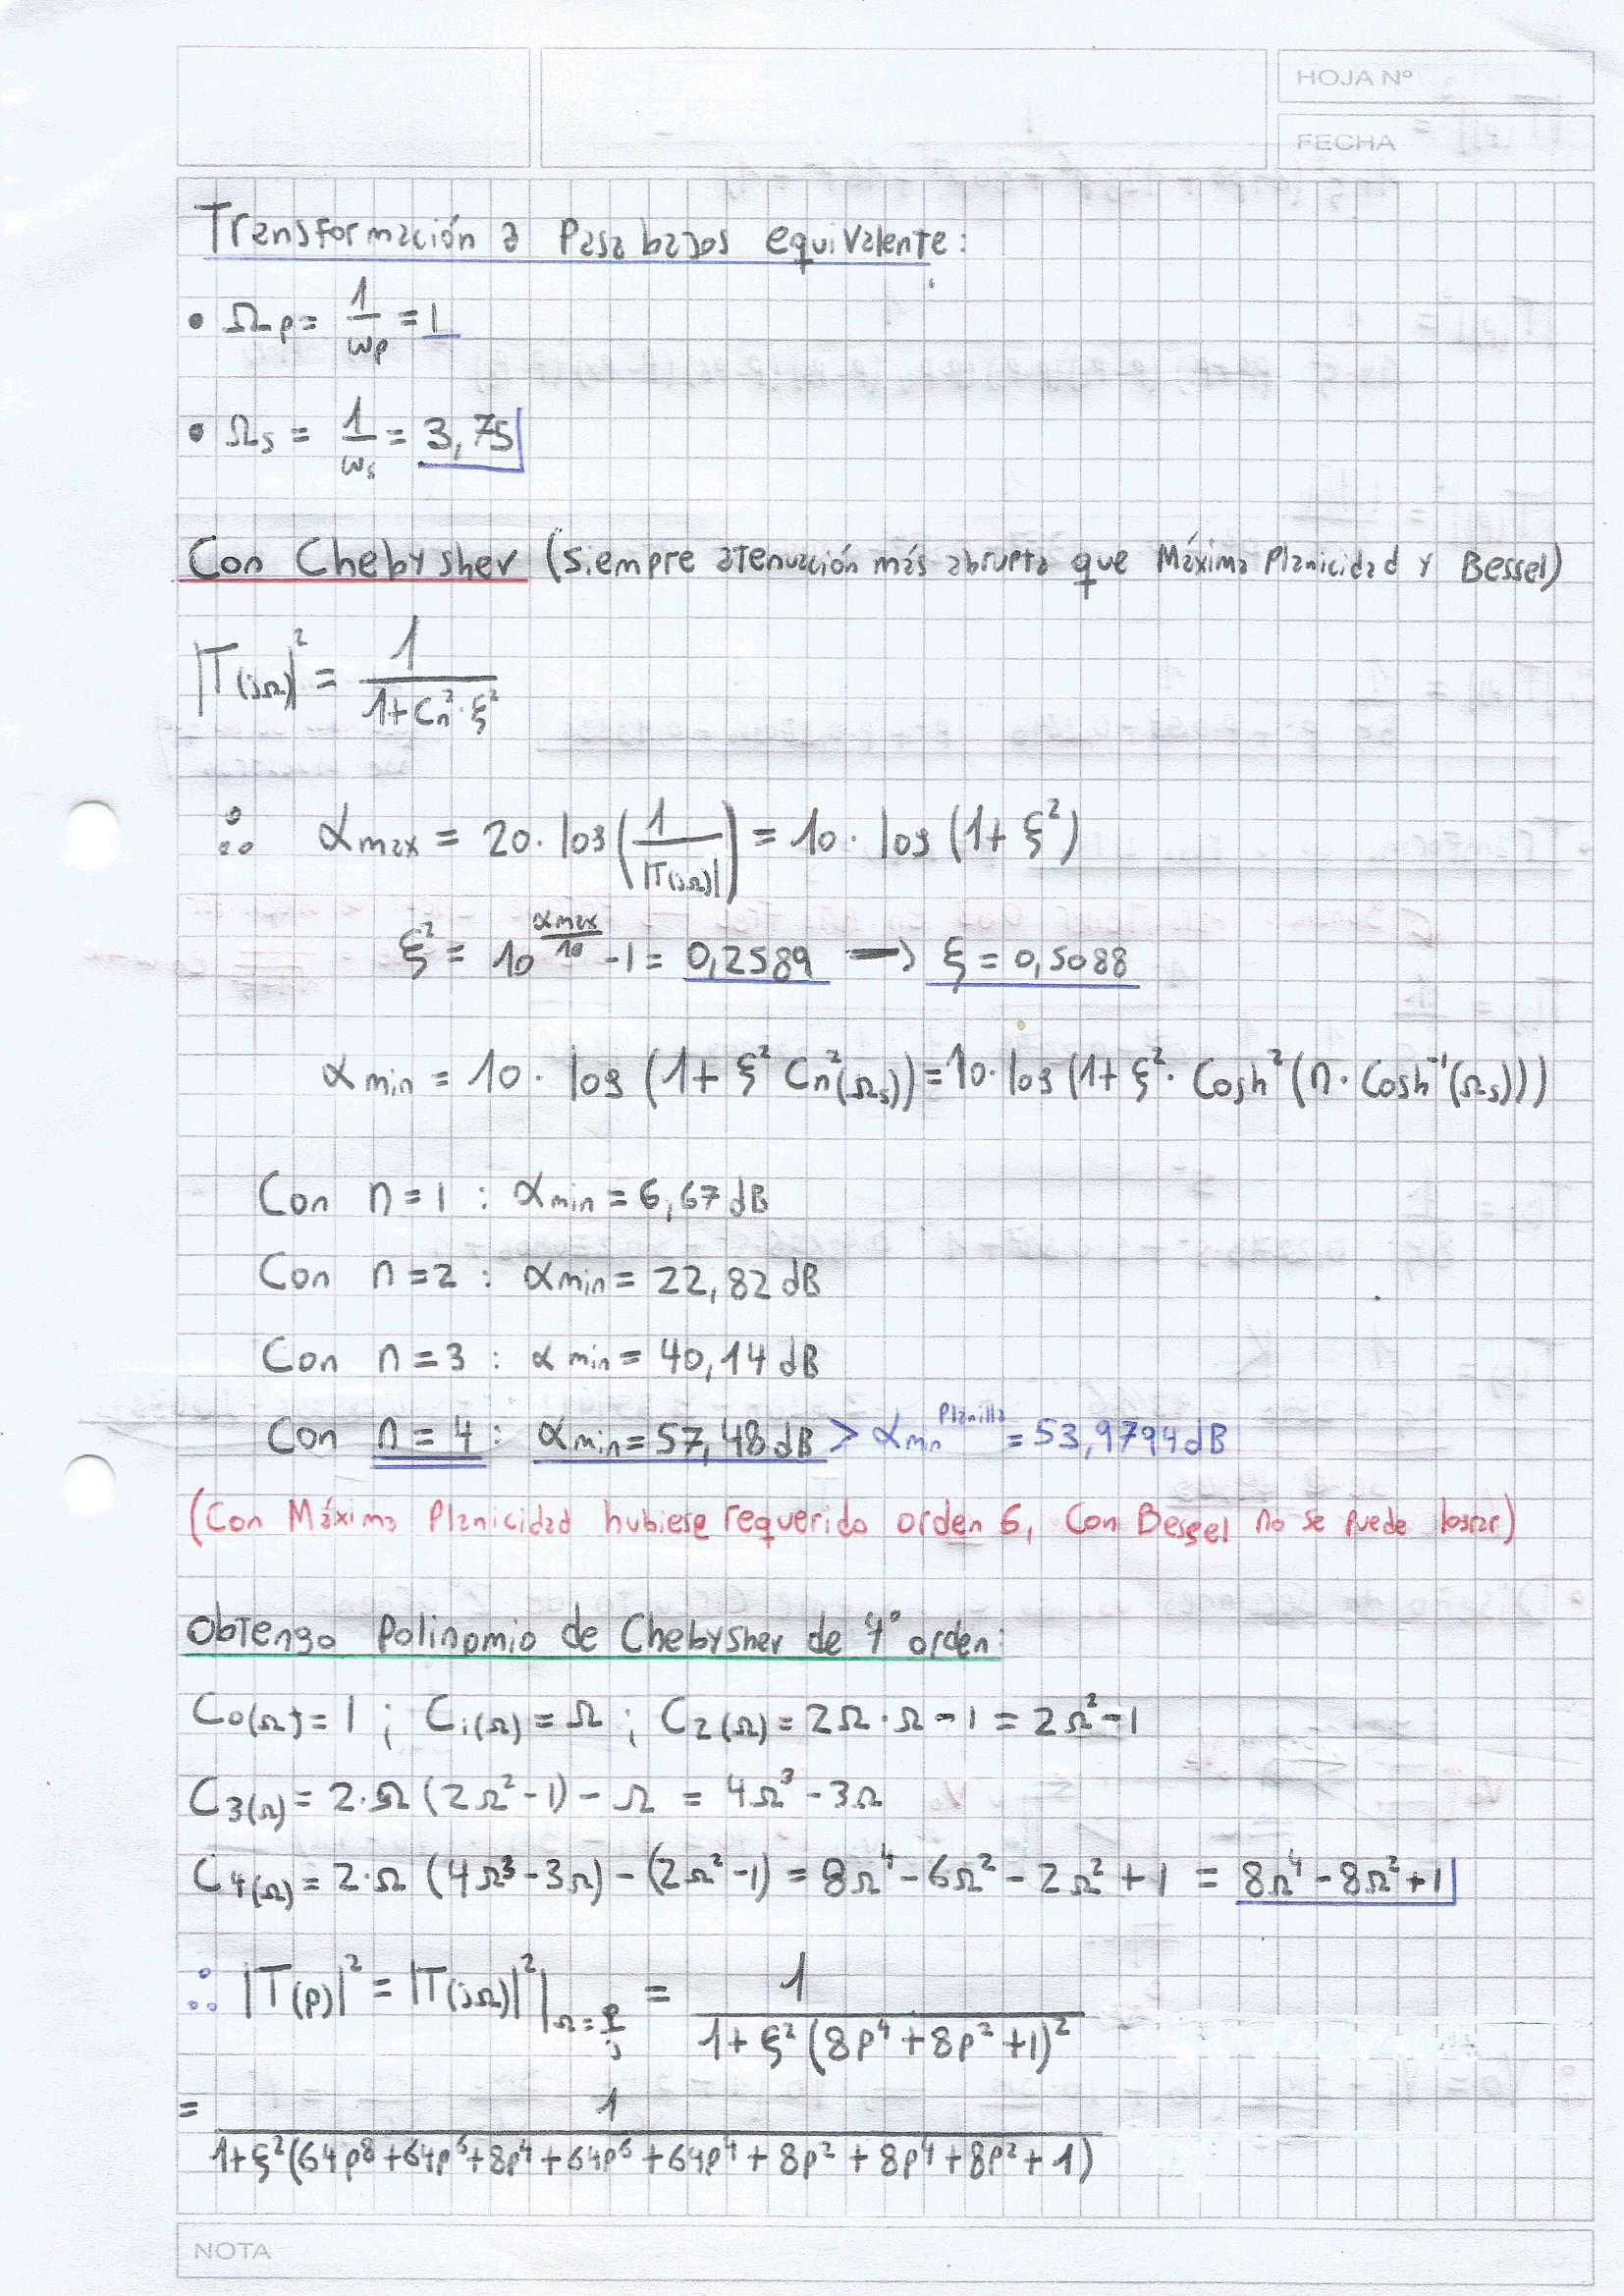 HOJA Nº
FECHA
Transformación a Pasabajos equivalente:
• Ωp = 1/ωp = 1
• Ωs = 1/ωs = 3,75
Con Chebyshev (siempre atenuación más abrupta que Máxima Planicidad y Bessel)
|T(jΩ)|² = 1/(1+Cn²·ξ²)
∴ αmax = 20·log(1/|T(jΩ)|) = 10·log(1+ξ²)
ξ² = 10^(αmax/10) -1 = 0,2589 → ξ = 0,5088
αmin = 10·log(1+ξ² Cn²(Ωs)) = 10·log(1+ξ²·Cosh²(n·Cosh⁻¹(Ωs)))
Con n=1 : αmin = 6,67 dB
Con n=2 : αmin = 22,82 dB
Con n=3 : αmin = 40,14 dB
Con n=4 : αmin = 57,48 dB > αmin Planilla = 53,9794 dB
(Con Máxima Planicidad hubiese requerido orden 6, Con Bessel no se puede lograr)
Obtengo Polinomio de Chebyshev de 4° orden:
C0(Ω) = 1 ; C1(Ω) = Ω ; C2(Ω) = 2Ω·Ω-1 = 2Ω²-1
C3(Ω) = 2·Ω(2Ω²-1)-Ω = 4Ω³-3Ω
C4(Ω) = 2·Ω(4Ω³-3Ω)-(2Ω²-1) = 8Ω⁴-6Ω²-2Ω²+1 = 8Ω⁴-8Ω²+1
∴ |T(p)|² = |T(jΩ)|²|Ω=p/j = 1/(1+ξ²(8p⁴+8p²+1)²)
= 1/(1+ξ²(64p⁸+64p⁶+8p⁴+64p⁶+64p⁴+8p²+8p⁴+8p²+1))
NOTA